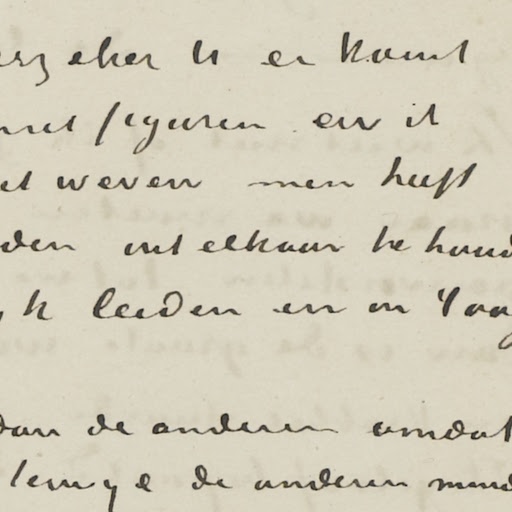 erzeker U er komt
met figuren en it
et weven men heeft
den uit elkaar te houd
k leiden en in 't oog
dan de anderen omdat
lemge de anderen mind